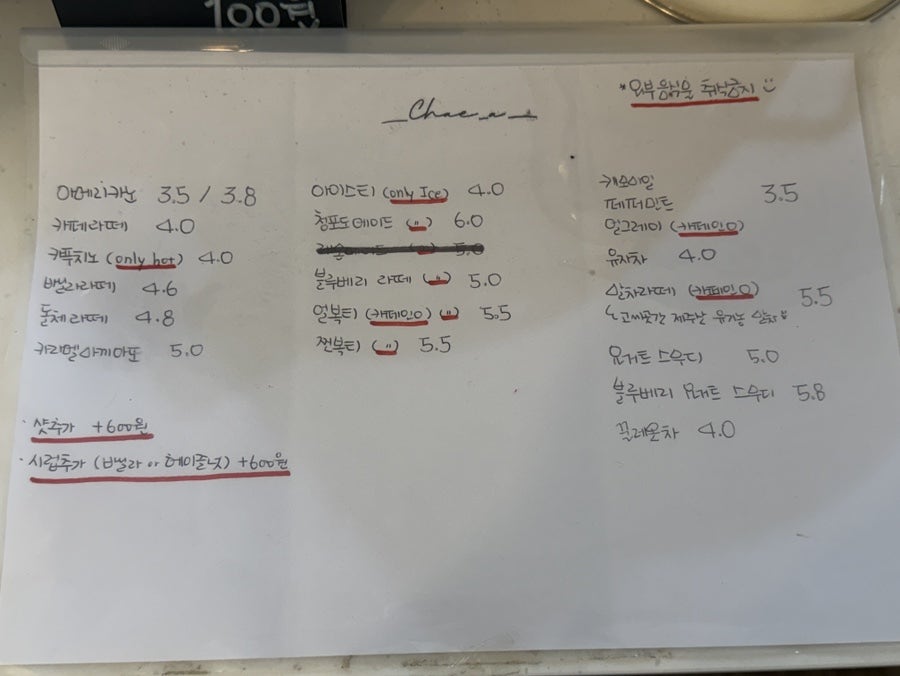 100원
*외부음식물 취식금지
아메리카노 3.5 / 3.8
카페라떼 4.0
카푸치노 (only hot) 4.0
바닐라라떼 4.6
돌체라떼 4.8
카라멜마끼아또 5.0
·샷추가 +600원
·시럽추가 (바닐라 or 헤이즐넛) +600원
아이스티 (only Ice) 4.0
청포도에이드 (") 6.0
5.0
블루베리 라떼 (") 5.0
얼복티 (카페인O) (") 5.5
쩐복티 (") 5.5
캐모마일
페퍼민트 3.5
얼그레이 (카페인O)
유자차 4.0
말차라떼 (카페인O) 5.5
제주산 유기농 말차
요거트 스무디 5.0
블루베리 요거트 스무디 5.8
꿀레몬차 4.0